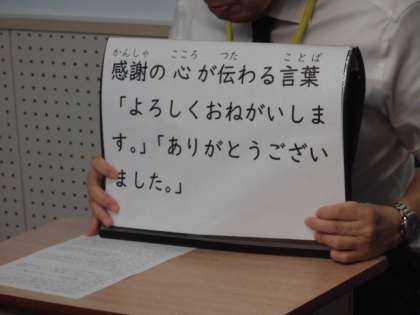 かんしゃ こころ つた ことば
感謝の心が伝わる言葉
「よろしくおねがいしま
す。」「ありがとうござい
ました。」